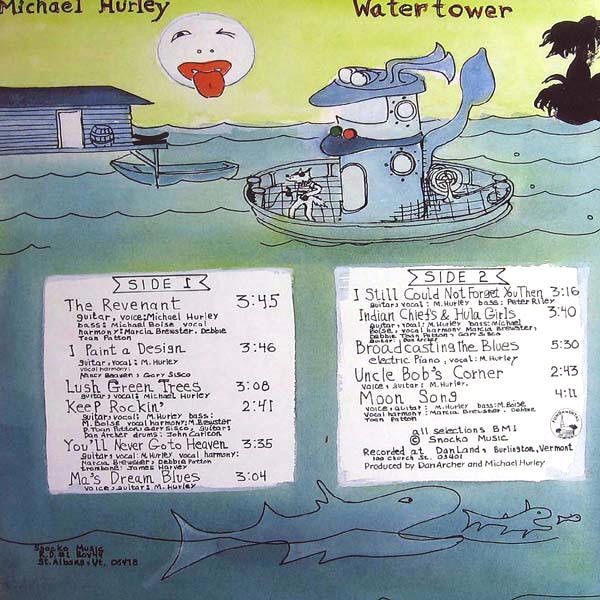 Michael Hurley
Watertower
SIDE 1
The Revenant 3:45
guitar, voice: Michael Hurley
bass: Michael Boise vocal
harmony: Marcia Brewster, Debbie
Toan Patton
I Paint a Design 3:46
guitar, vocal: M. Hurley
vocal harmony:
Nancy Beaven, Gary Sisco
Lush Green Trees 3:08
guitar, vocal: Michael Hurley
Keep Rockin' 2:41
guitar, vocal: M. Hurley bass:
M. Boise vocal harmony: M. Brewster
D. Toan Patton, Gary Sisco, guitar:
Dan Archer drums: John Carlton
You'll Never Go to Heaven 3:35
guitar, vocal: M. Hurley vocal harmony:
Marcia Brewster, Debbie Patton
trombone: James Harvey
Ma's Dream Blues 3:04
voice, guitar: M. Hurley
SIDE 2
I Still Could Not Forget You Then 3:16
guitar, vocal: M. Hurley bass: Peter Riley
Indian Chiefs & Hula Girls 3:40
guitar, vocal: M. Hurley bass: Michael
Boise, vocal harmony Marcia Brewster,
Debbie Toan Patton, Gary Sisco
guitar: Dan Archer
Broadcasting the Blues 5:30
electric Piano, vocal: M. Hurley
Uncle Bob's Corner 2:43
voice, guitar: M. Hurley.
Moon Song 4:11
voice, guitar: M. Hurley bass: M. Boise
vocal harmony: Marcia Brewster, Debbie
Toan Patton
all selections BMI
© Snocko Music
Recorded at Dan Land, Burlington, Vermont
100 Church St. 05401
Produced by Dan Archer and Michael Hurley
Snocko Music
R.D. #1 Box 44
St. Albans, Vt. 05478